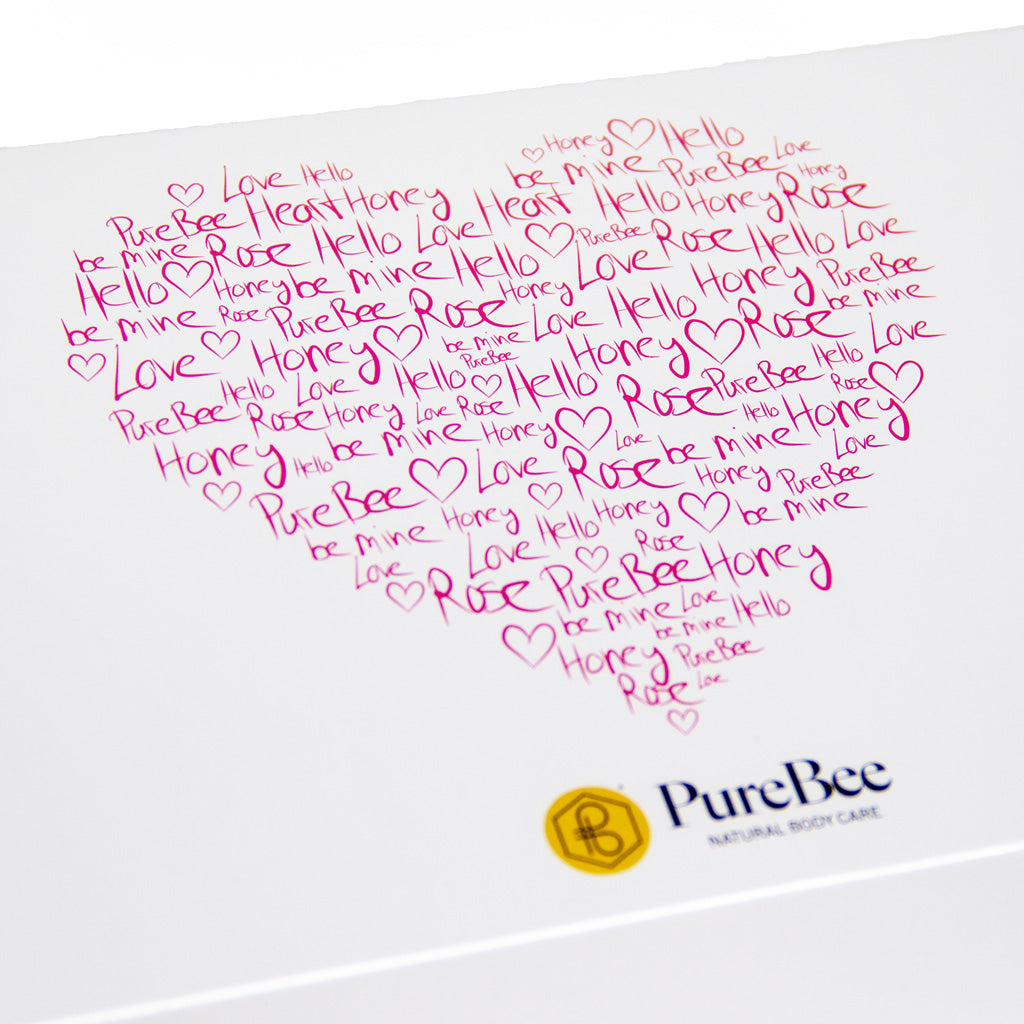 Honey Hello
Love Hello be mine PureBee Love
PureBee Heart Honey Heart Hello Honey Rose Honey
be mine Rose Hello Love PureBee Rose Hello Love
Hello Honey be mine Hello Love Honey PureBee
be mine Rose PureBee Rose Honey Love Hello Rose be mine
Love Honey be mine PureBee Honey Hello Love
PureBee Hello Love Hello Hello Rose PureBee Rose
Rose Honey Love Rose Hello Honey
Honey Hello be mine Honey Love be mine Love
PureBee Love Rose Honey PureBee
be mine Honey Hello Honey be mine
Love Love Rose
Rose PureBee Honey
be mine Love
be mine Hello
Honey PureBee
Rose Love
PureBee
NATURAL BODY CARE